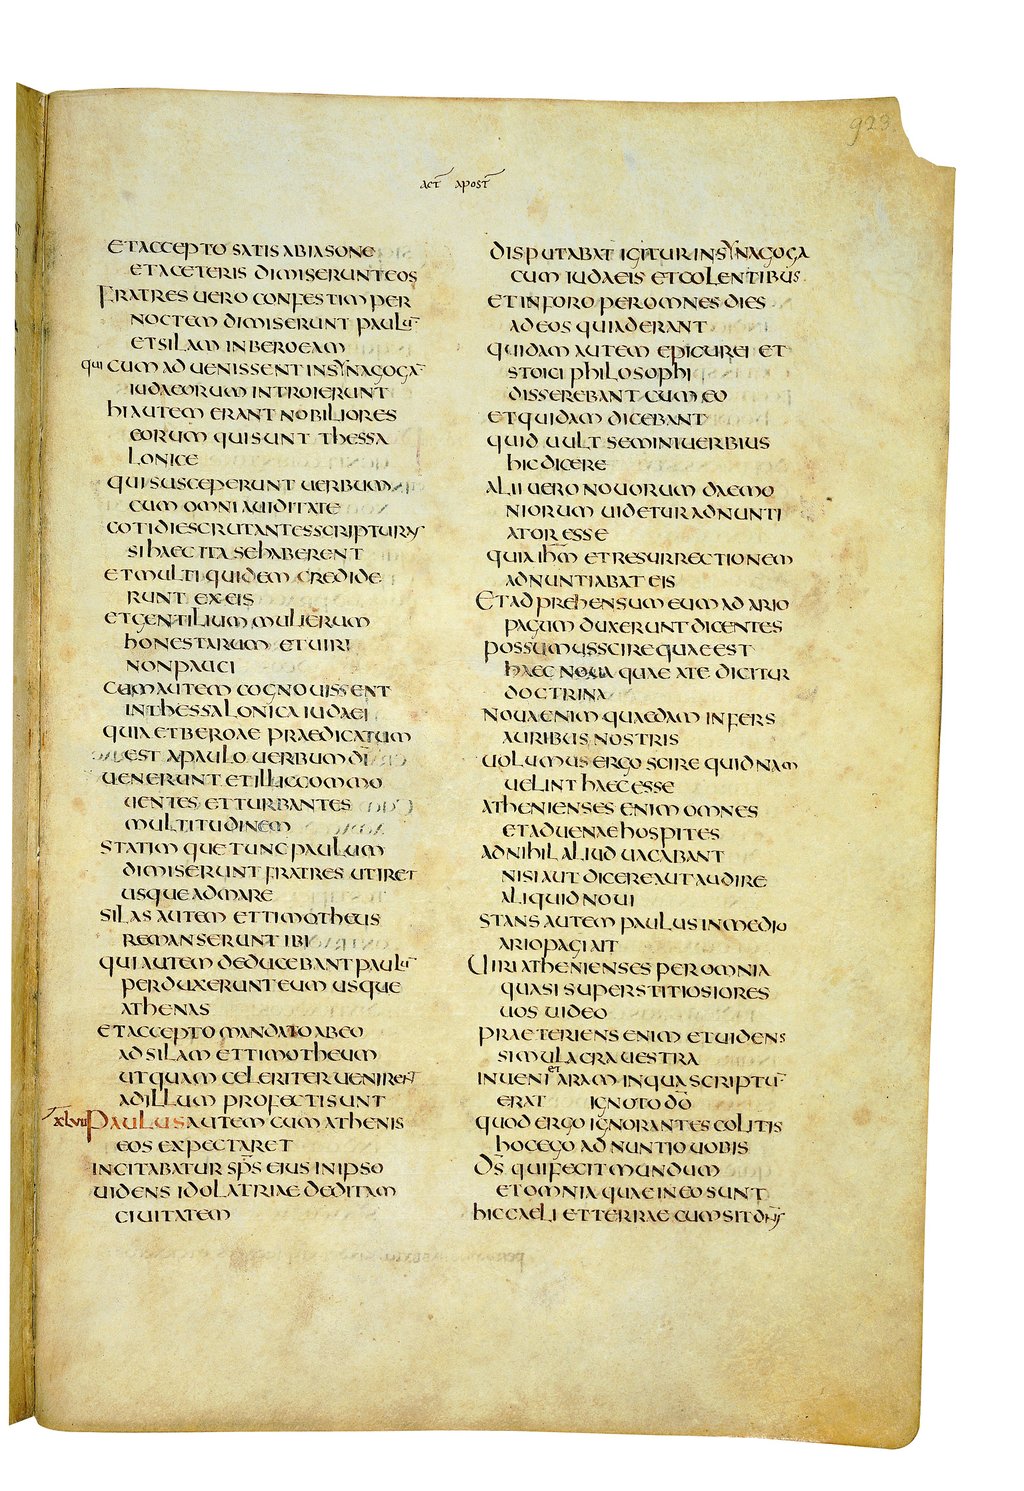 923
act apost
ET ACCEPTO SATIS AB IASONE
ET A CETERIS DIMISERUNT EOS
FRATRES UERO CONFESTIM PER
NOCTEM DIMISERUNT PAULŪ
ET SILAM IN BEROEAM
qui CUM ADUENISSENT IN SYNAGOGĀ
IUDAEORUM INTROIERUNT
HI AUTEM ERANT NOBILIORES
EORUM QUI SUNT THESSA
LONICE
QUI SUSCEPERUNT UERBUM
CUM OMNI AUIDITATE
COTIDIE SCRUTANTES SCRIPTURAS
SI HAEC ITA SE HABERENT
ET MULTI QUIDEM CREDIDE
RUNT EX EIS
ET GENTILIUM MULIERUM
HONESTARUM ET UIRI
NON PAUCI
CUM AUTEM COGNOUISSENT
IN THESSALONICA IUDAEI
QUIA ET BEROAE PRAEDICATUM
EST A PAULO UERBUM DĪ
UENERUNT ET ILLIC COMMO
UENTES ET TURBANTES
MULTITUDINEM
STATIMQUE TUNC PAULUM
DIMISERUNT FRATRES UT IRET
USQUE AD MARE
SILAS AUTEM ET TIMOTHEUS
REMANSERUNT IBI
QUI AUTEM DEDUCEBANT PAULŪ
PERDUXERUNT EUM USQUE
ATHENAS
ET ACCEPTO MANDATO AB EO
AD SILAM ET TIMOTHEUM
UT QUAM CELERITER UENIRENT
AD ILLUM PROFECTI SUNT
xlvii PAULUS AUTEM CUM ATHENIS
EOS EXPECTARET
INCITABATUR SPS EIUS IN IPSO
UIDENS IDOLATRIAE DEDITAM
CIUITATEM
DISPUTABAT IGITUR IN SYNAGOGA
CUM IUDAEIS ET COLENTIBUS
ET IN FORO PER OMNES DIES
AD EOS QUI ADERANT
QUIDAM AUTEM EPICUREI ET
STOICI PHILOSOPHI
DISSEREBANT CUM EO
ET QUIDAM DICEBANT
QUID UULT SEMINIUERBIUS
HIC DICERE
ALII UERO NOUORUM DAEMO
NIORUM UIDETUR ADNUNTI
ATOR ESSE
QUIA IHM ET RESURRECTIONEM
ADNUNTIABAT EIS
ET ADPREHENSUM EUM AD ARIO
PAGUM DUXERUNT DICENTES
POSSUMUS SCIRE QUAE EST
HAEC NOUA QUAE A TE DICITUR
DOCTRINA
NOUA ENIM QUAEDAM INFERS
AURIBUS NOSTRIS
UOLUMUS ERGO SCIRE QUIDNAM
UELINT HAEC ESSE
ATHENIENSES ENIM OMNES
ET ADUENAE HOSPITES
AD NIHIL ALIUD UACABANT
NISI AUT DICERE AUT AUDIRE
ALIQUID NOUI
STANS AUTEM PAULUS IN MEDIO
ARIOPAGI AIT
UIRI ATHENIENSES PER OMNIA
QUASI SUPERSTITIOSIORES
UOS UIDEO
PRAETERIENS ENIM ET UIDENS
SIMULACRA UESTRA
INUENI et ARAM IN QUA SCRIPTŪ
ERAT IGNOTO DŌ
QUOD ERGO IGNORANTES COLITIS
HOC EGO ADNUNTIO UOBIS
DS QUI FECIT MUNDUM
ET OMNIA QUAE IN EO SUNT
HIC CAELI ET TERRAE CUM SIT DNS